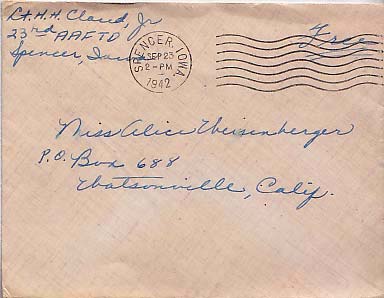 Lt. H. H. Claud, Jr
23rd AAFTD
Spencer, Iowa
SPENCER, IOWA.
SEP 23
2-PM
1942
Free
Miss Alice Weisenberger
P.O. Box 688
Watsonville, Calif.